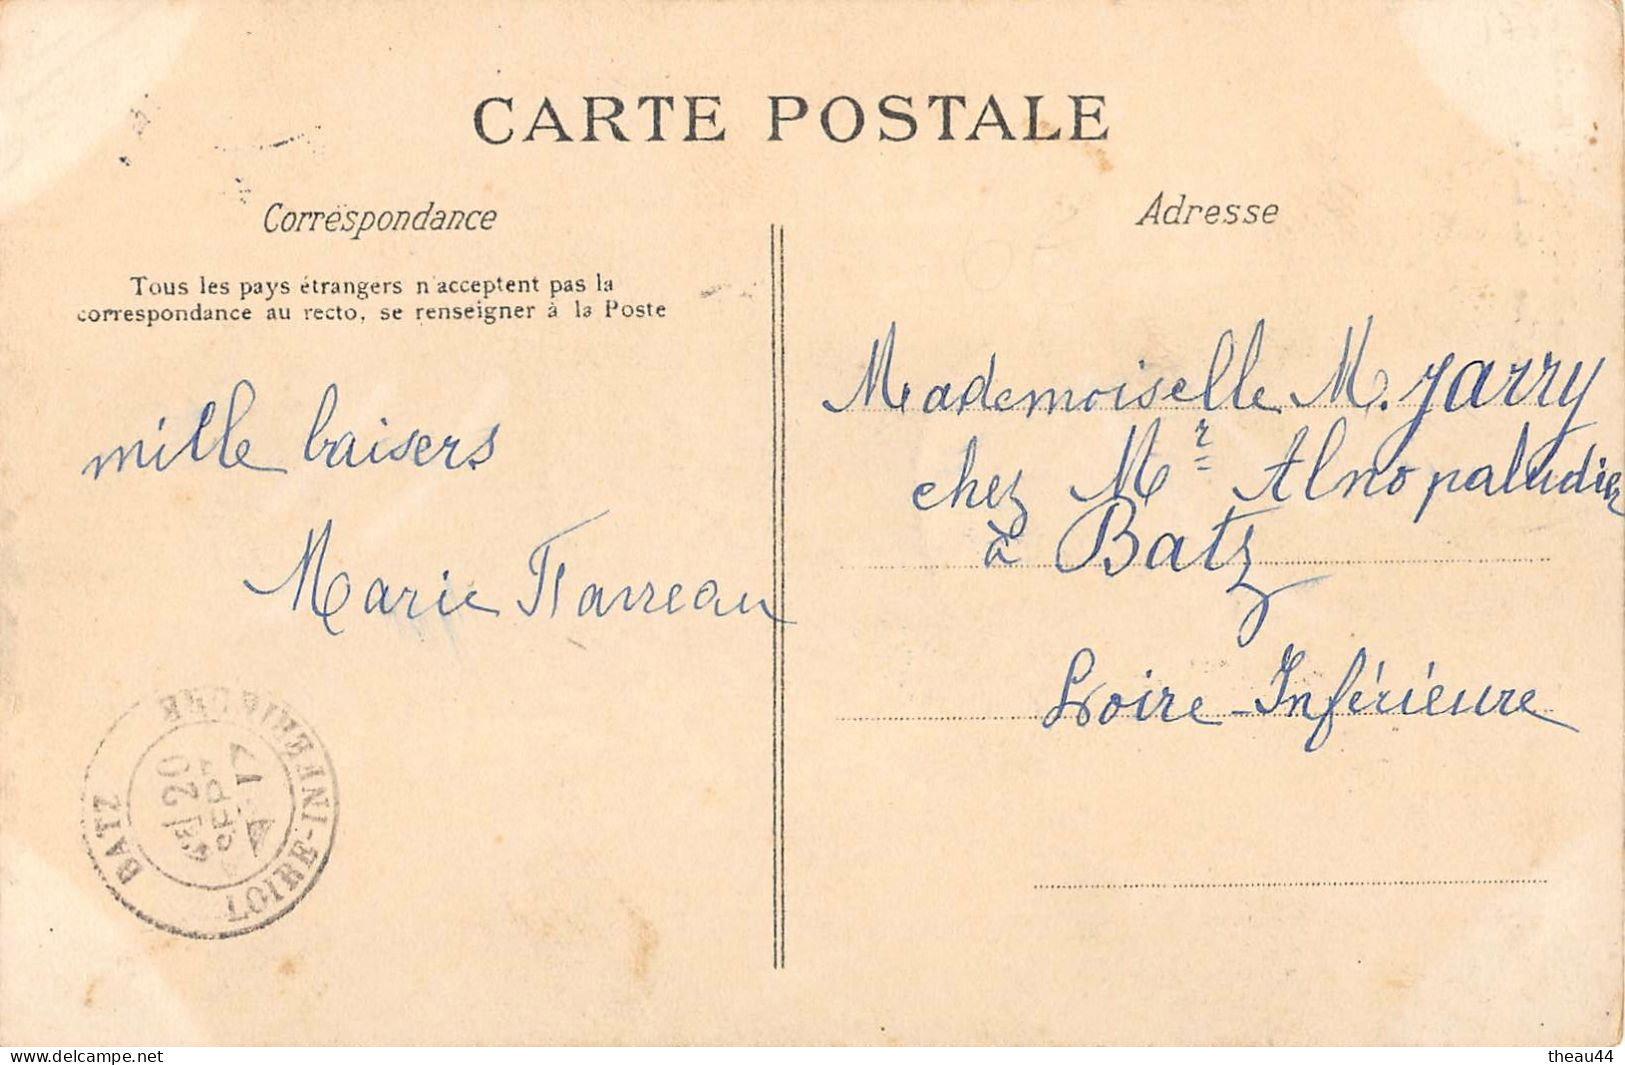 CARTE POSTALE
Correspondance
Tous les pays étrangers n'acceptent pas la
correspondance au recto, se renseigner à la Poste
mille baisers
Marie
Adresse
Mademoiselle M. Jarry
chez Mr Alno paludier
à Batz
Loire-Inférieure
BATZ
LOIRE-INFERIEURE
20
theau44